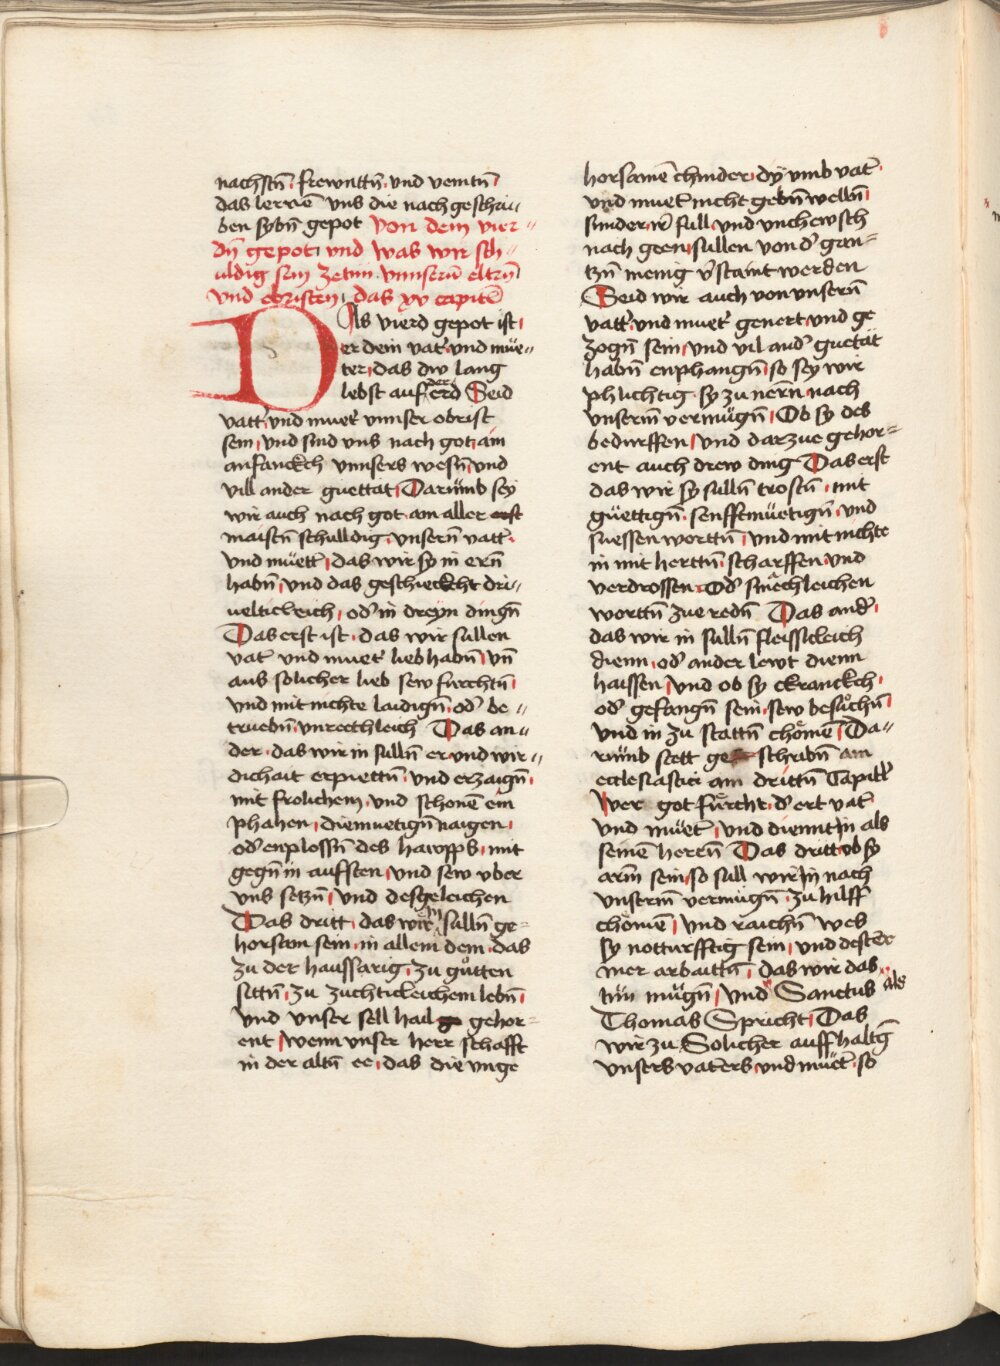 nachstn̄ · frewnttn̄ · und veintn̄
das lernē uns die nachgeschri„
ben sybn̄ gepot von dem vier„
dn̄ gepot, und was wir sch„
uldig sein zetun. vnnserñ eltrñ
und obristen, das xv capitel̄
Das vierd gepot ist
er dein vat̄ und mue„
ter, das dw lang
lebst auf der erd Seid
vatt̄ und muet̄ vnnser obrist
sein, und sind uns nach got, ain
anfanckch vnnsers wesn̄ und
vill ander guettat, Darumb sey
wir auch nach got am aller erst
maistn̄ schulldig unsern̄ vatt̄
und muett̄, das wir sy in ern̄
habn̄, und das geschieckcht dri„
ueltikleich, od̄ in dreyn dingn̄
Das erst ist, das wir sullen
vat̄ und muet̄ lieb habn̄, vn̄
aus solicher lieb sew furchtn̄
und mit nichte laidign̄ od̄ be„
truebn̄ unrechtleich Das an„
der, das wir in sulln̄ er und wir„
dichait erpiettn̄ und erzaign̄
mit frolichem und schonē ein
phahen, diemuetign̄ naigen
od̄ enplossn̄ des hawpps, mit
gegn̄ in auffsten, und sew uber
uns setzn̄, und desgeleichen
Das dritt, das wir in sulln̄ ge„
horsam sein, in allem dem, das
zu der haussarig, zu guͦtten
sittn̄, zu zuchtikleichem lebn̄
und unser sell hail gehor„
ent, wenn unser herr schafft
in der altn̄ ee, das die unge
horsamē chinder dy umb vat̄
und muet̄ nicht gebn̄ welln̄
sunder ir̄ full und unchewsch
nach geen, sullen von d̄ gan„
tzn̄ menig v̄staint werden
Seid wir auch von unsern̄
vatt̄ und muet̄ genert, und ge
zogn̄ sein, und vil and̄ guetat
habn̄ enphangn̄, so sey wir
phlichtig sy zu nern̄ nach
unserm̄ vermugn̄, Ob sy des
bedurffen, und darzue gehor„
ent auch drew ding Das erst
das wir sy sulln̄ trostn̄, mit
guettign̄, senfftmuetign̄, und
suessen worttn̄, und mit nichte
in mit herttn̄ scharffen und
verdrossen od̄ smächleichen
worttn̄ zue redn̄ Das and̄
das wir in sulln̄ fleissikleich
dienn, od̄ ander lewt dienn
haissen, und ob sy ckranckch
od̄ gefangn̄ sein, sew besuͦchn̄
und in zu stattn̄ chömē, Da„
rumb stett ge schribn̄ am
ecclesiastici am drittn̄ Capitl̄
Wer got furcht, d̄ ert vat̄
und muet̄, und dienntt in als
seinē herrn̄ Das dritt ob sy
arm sein, so sull wir in nach
unserm̄ vermugn̄, zu hilff
chömē, und raichn̄ wes
sy notturfftig sein, und dester
mer arbaittn̄, das wir das
tun mugn̄, und Sanctus als
Thomas Spricht, Das
wir zu Solicher auffhaltḡ
unsers vaters, und muet̄ so